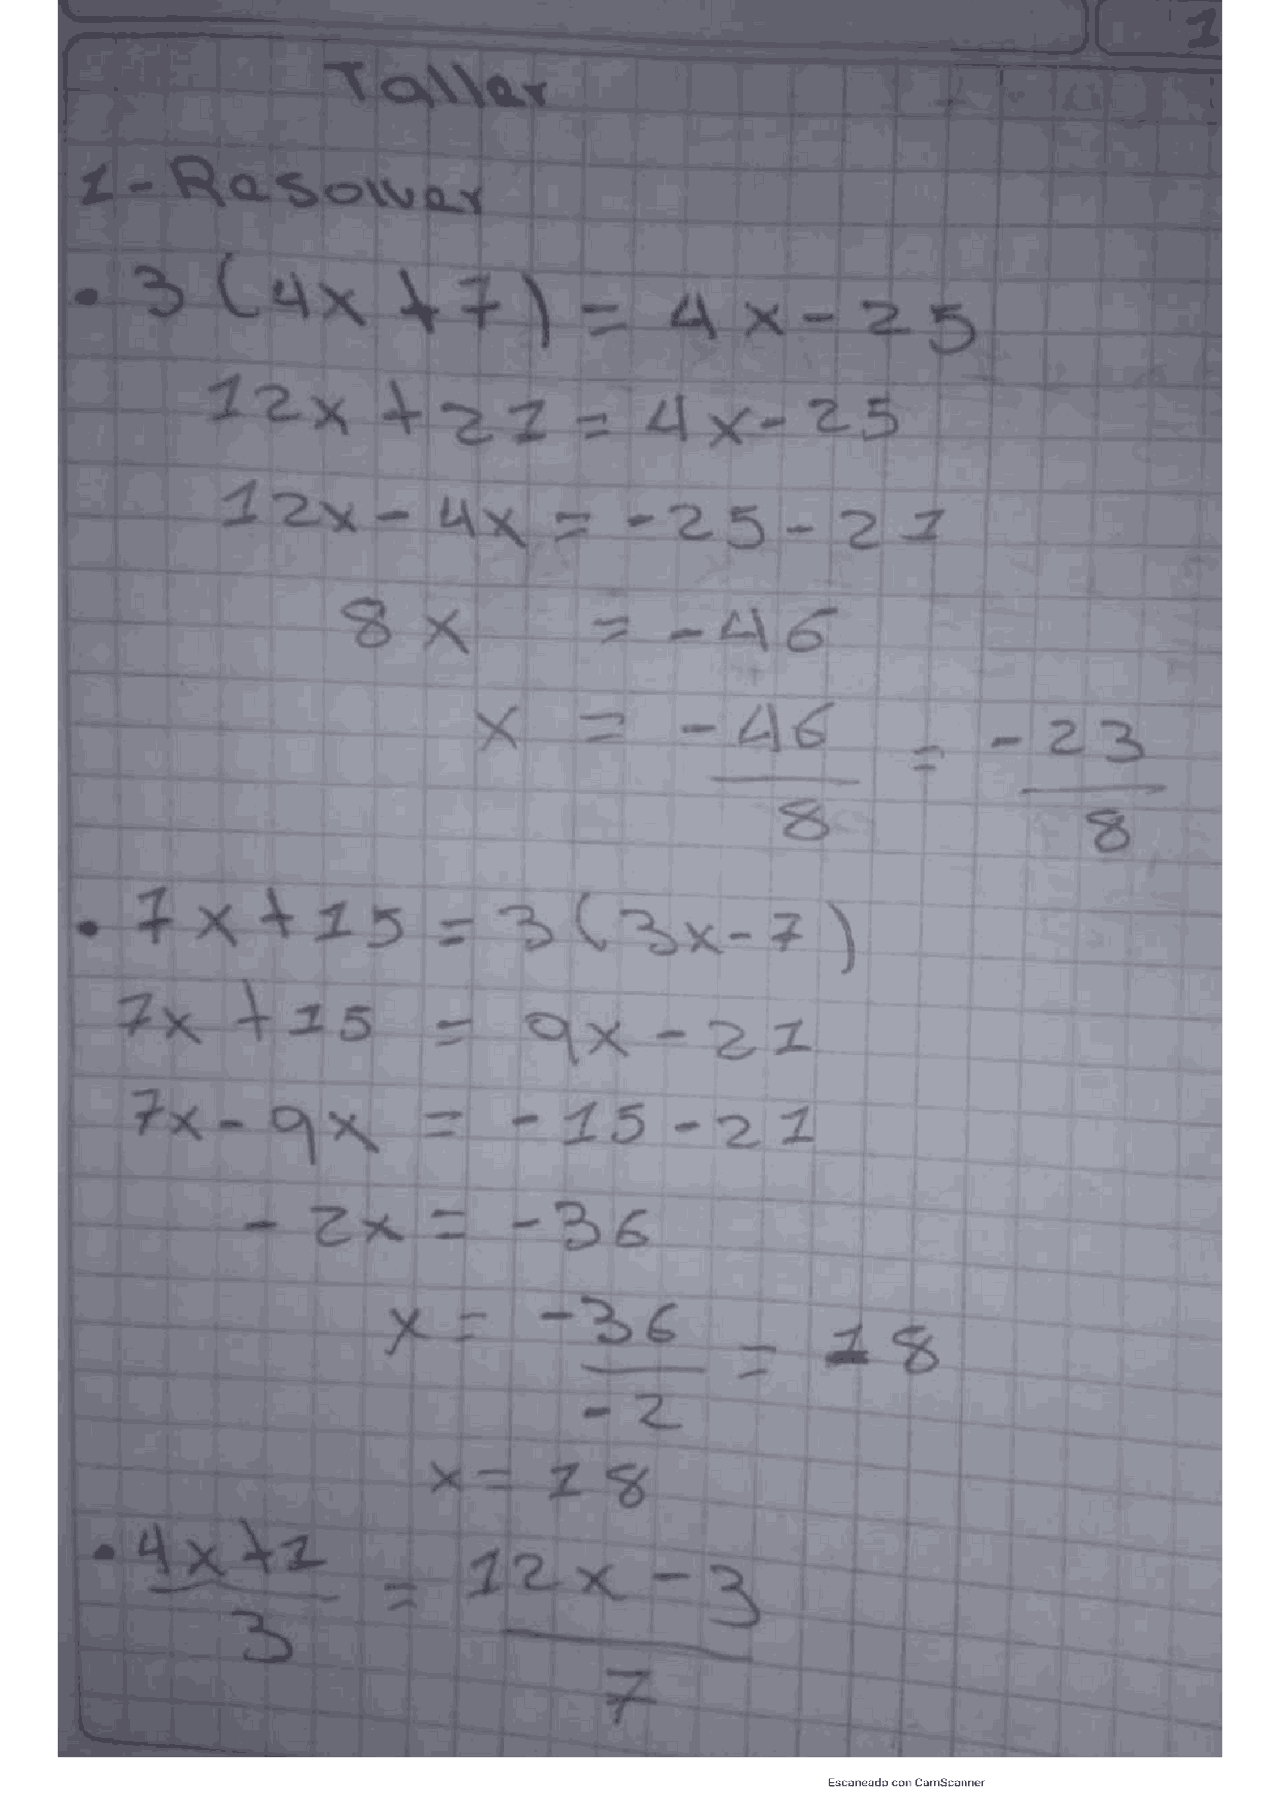 1
Taller
1-Resolver
• 3(4x+7) = 4x-25
12x+21 = 4x-25
12x-4x = -25-21
8x = -46
x = -46/8 = -23/8
• 7x+15 = 3(3x-7)
7x+15 = 9x-21
7x-9x = -15-21
-2x = -36
x = -36/-2 = 18
x = 18
• 4x+1/3 = 12x-3/7
Escaneado con CamScanner